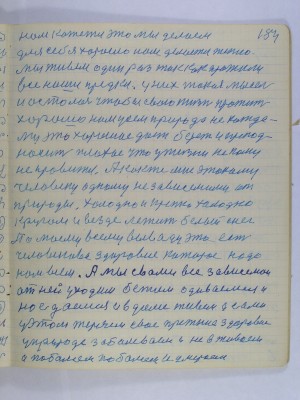 184
нам кажется это мы делаем
для себя хорошо нам делать тепло.
Мы живем один раз так как прожили
все наши предки. у них такая мысль
и осталась чтобы свою жизнь прожить
хорошо нам всем природа не каждо-
му это хорошие дает берет и препод-
носит плохое что у жизни не кому
не нравится. А как те мне этакому
человеку одному не зависимому от
природы. Холодно и крепко холодно
кругом и везде лежит белый снег
По моему всему выводу это есть
человеческое здоровье которое надо
нам всем. А мы с вами все зависимы
от ней уходим бежим одеваемся и
но едаемся и в доме живем а сами
у этом теряем свое прежнее здоровье
у природе заболеваем и не живаем
а поболеем поболеем и умираем